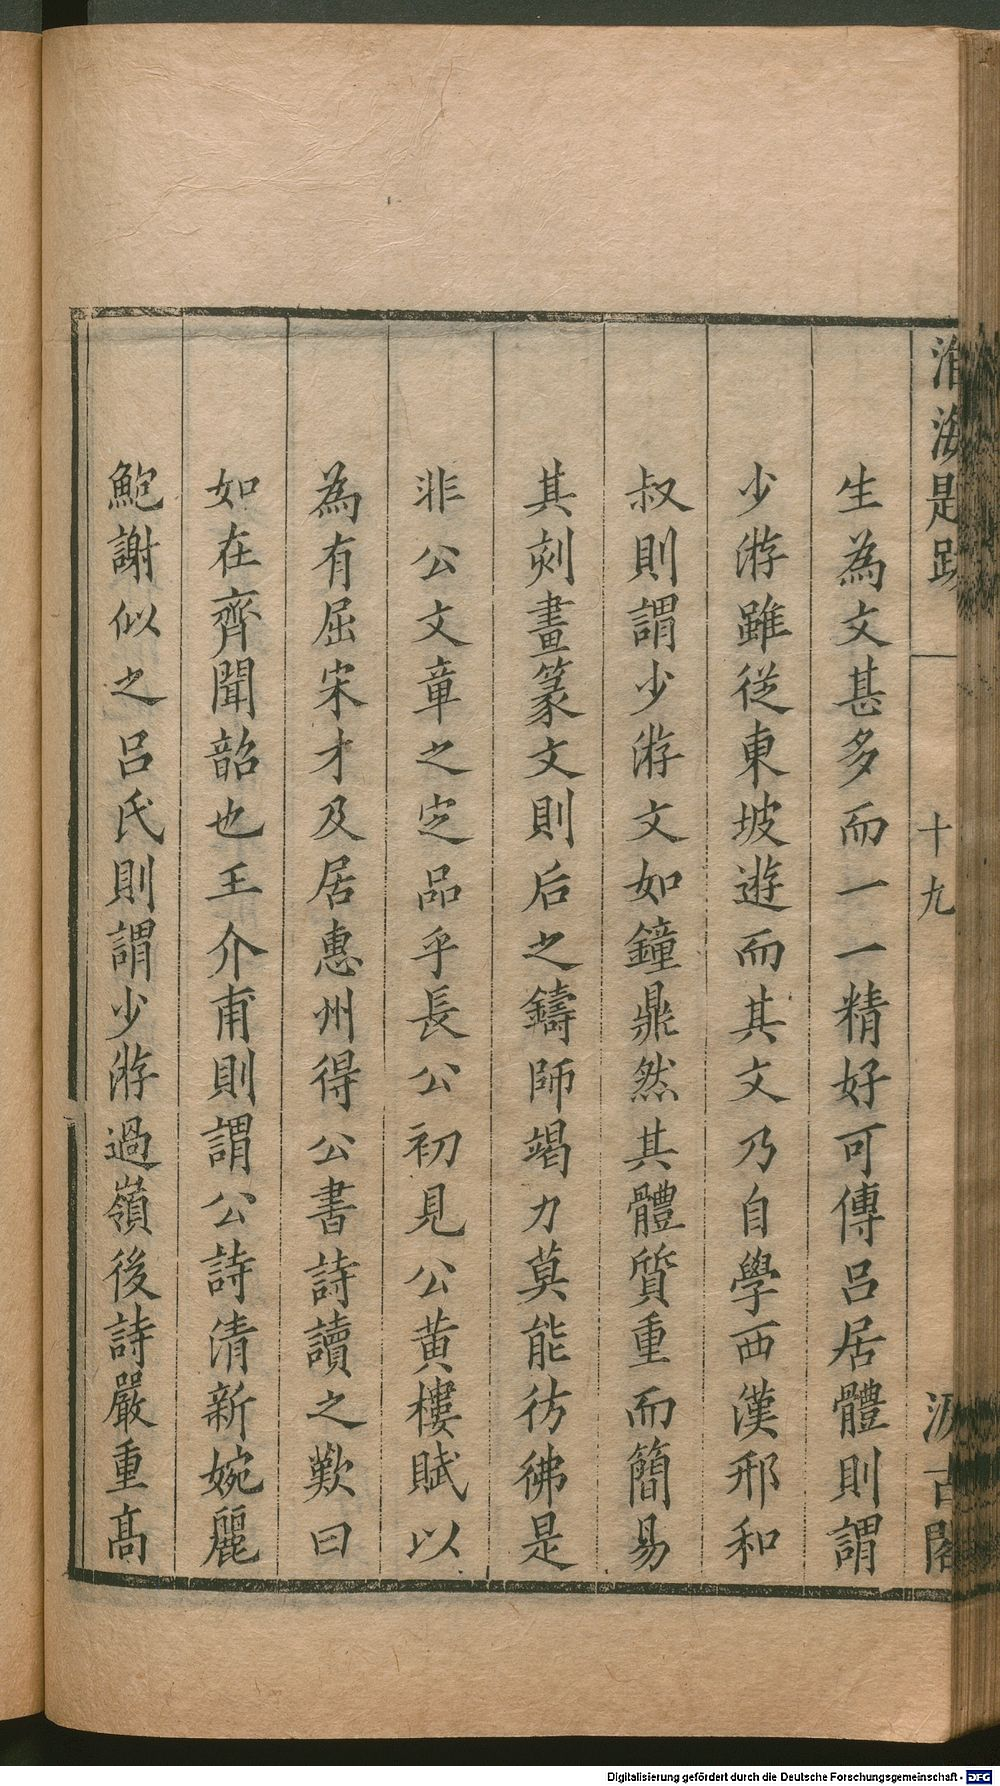 淮海題跋
十九
汲古閣
生為文甚多而一一精好可傳吕居體則謂
少游雖從東坡遊而其文乃自學西漢邢和
叔則謂少游文如鐘鼎然其體質重而簡易
其刻畫篆文則后之鑄師竭力莫能彷彿是
非公文章之定品乎長公初見公黄樓賦以
為有屈宋才及居惠州得公書詩讀之歎曰
如在齊聞韶也王介甫則謂公詩清新婉麗
鮑謝似之吕氏則謂少游過嶺後詩嚴重高
Digitalisierung gefördert durch die Deutsche Forschungsgemeinschaft - DFG